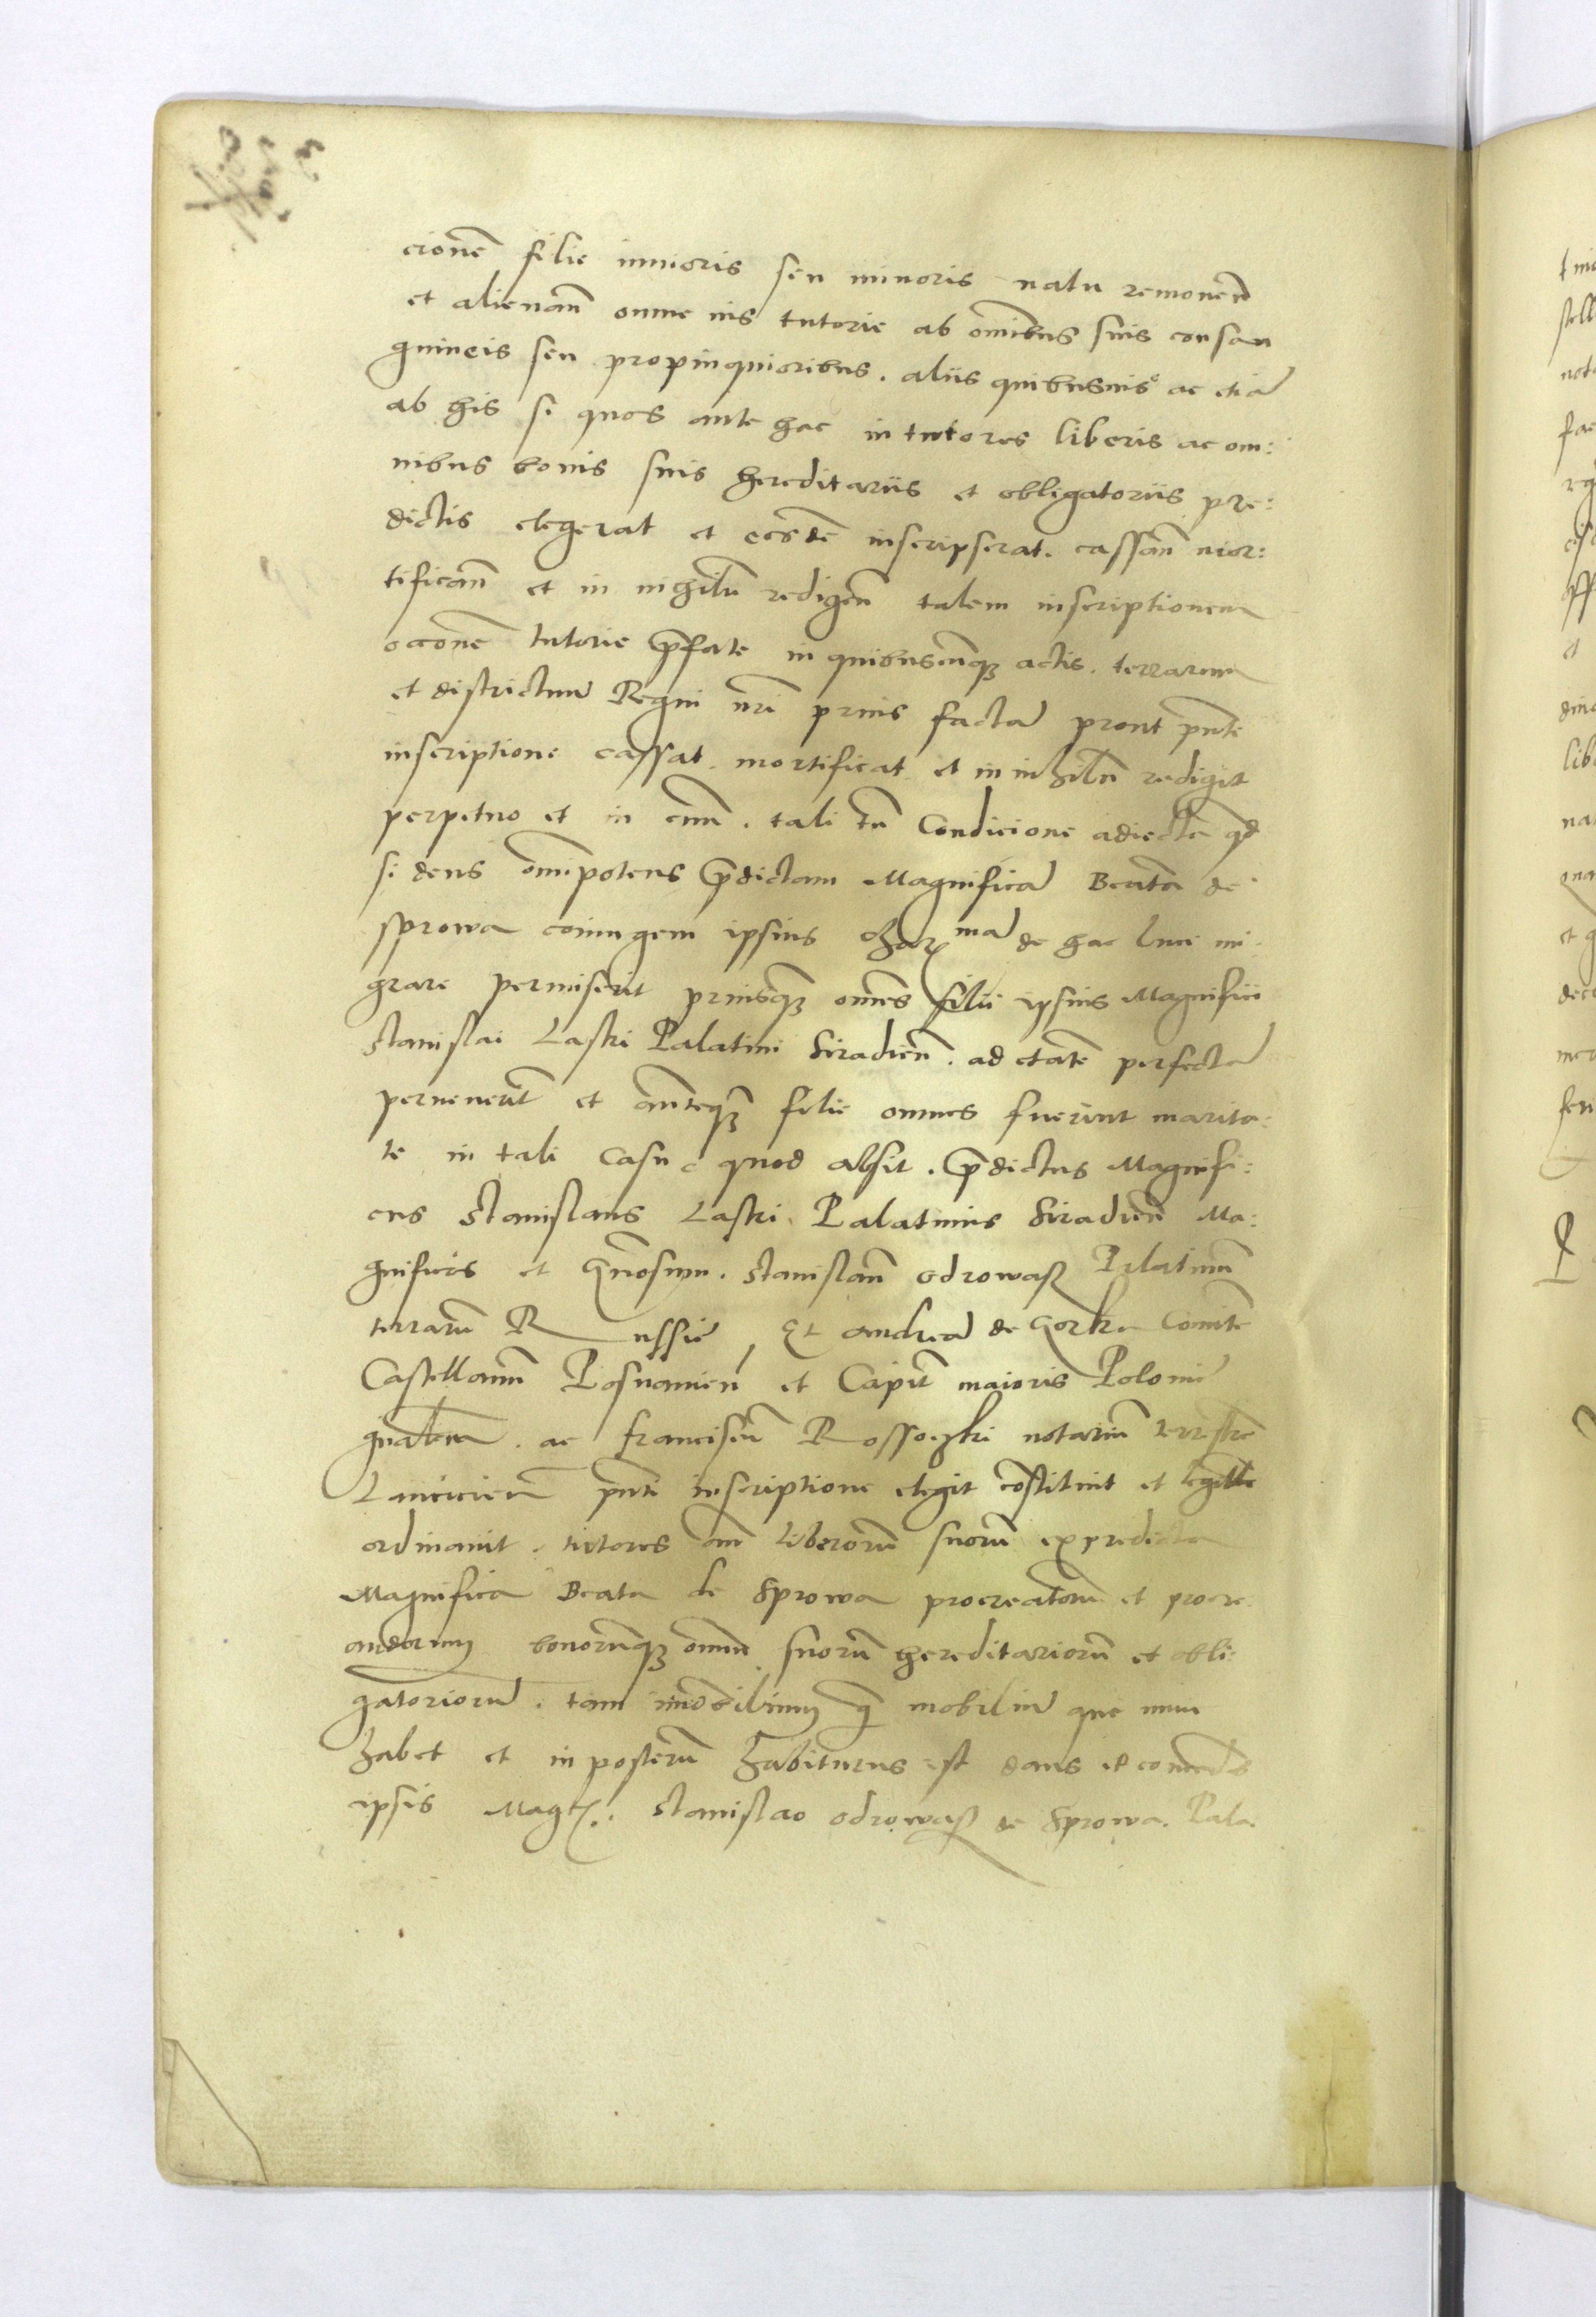 cionē filie iunioris seu minoris natu remouen̄
et alienan̄ omne ius tutorie ab om̄ibus suis consan
guineis seu propinquioribus . aliis quibusuis ac etiā
ab his si quos ante hac in tutores liberis ac om:
nibus bonis suis hereditariis et obligatoriis pre:
dictis elegerat et eosdē inscripserat . cassan̄ mor:
tifican̄ et in nihilū redigen̄ talem inscriptionem
occōne tutorie p̄fate in quibuscunq3 actis . terrarum
et districtuum Regni nr̄i prius factā prout pn̄te
inscriptione cassat . mortificat et in nihilū redigit
perpetuo et in euū . tali tn̄ Condicione adiecta qd
si deus om̄ipotens p̄dictam Magnificā Beatā de
sprowa coniugem ipsius char mā de hac luce mi:
grare permiserit priusq3 om̄es filii ipsius Magnifici
Stanislai Laski Palatini Siradien̄ . ad etatē perfectā
peruenerīt et an̄teq3 filie omnes fuerint marita:
te in tali casu quod absit . p̄dictus Magnifi:
cus Stanislaus Laski Palatinus Siradien̄ Ma:
gnificos et Gn̄osum . Stanislaū odrowasz Palatinum
terrarū Russie , Et andreā de Gorka Comitē
Castellanum Posnanien̄ et Capit̄ maioris Polonie
gn̄alem . ac franciscū Rossoczki notariū terrestrē
Lancicien̄ pn̄ti inscriptione elegit cōstituit et legittē
ordinauit . tutores om̄ liberorū suorū ex predicta
Magnifica Beata de Sprowa procreatorū et procre
andorum bonorūq3 om̄iū suorū hereditariorū et obli:
gatoriorū . tam im̄obilium q̄ mobiliū que nunc
habet et in posterū habiturus est dans et concedēs
ipsis Magcis . Stanislao odrowasz de Sprowa . Pala.